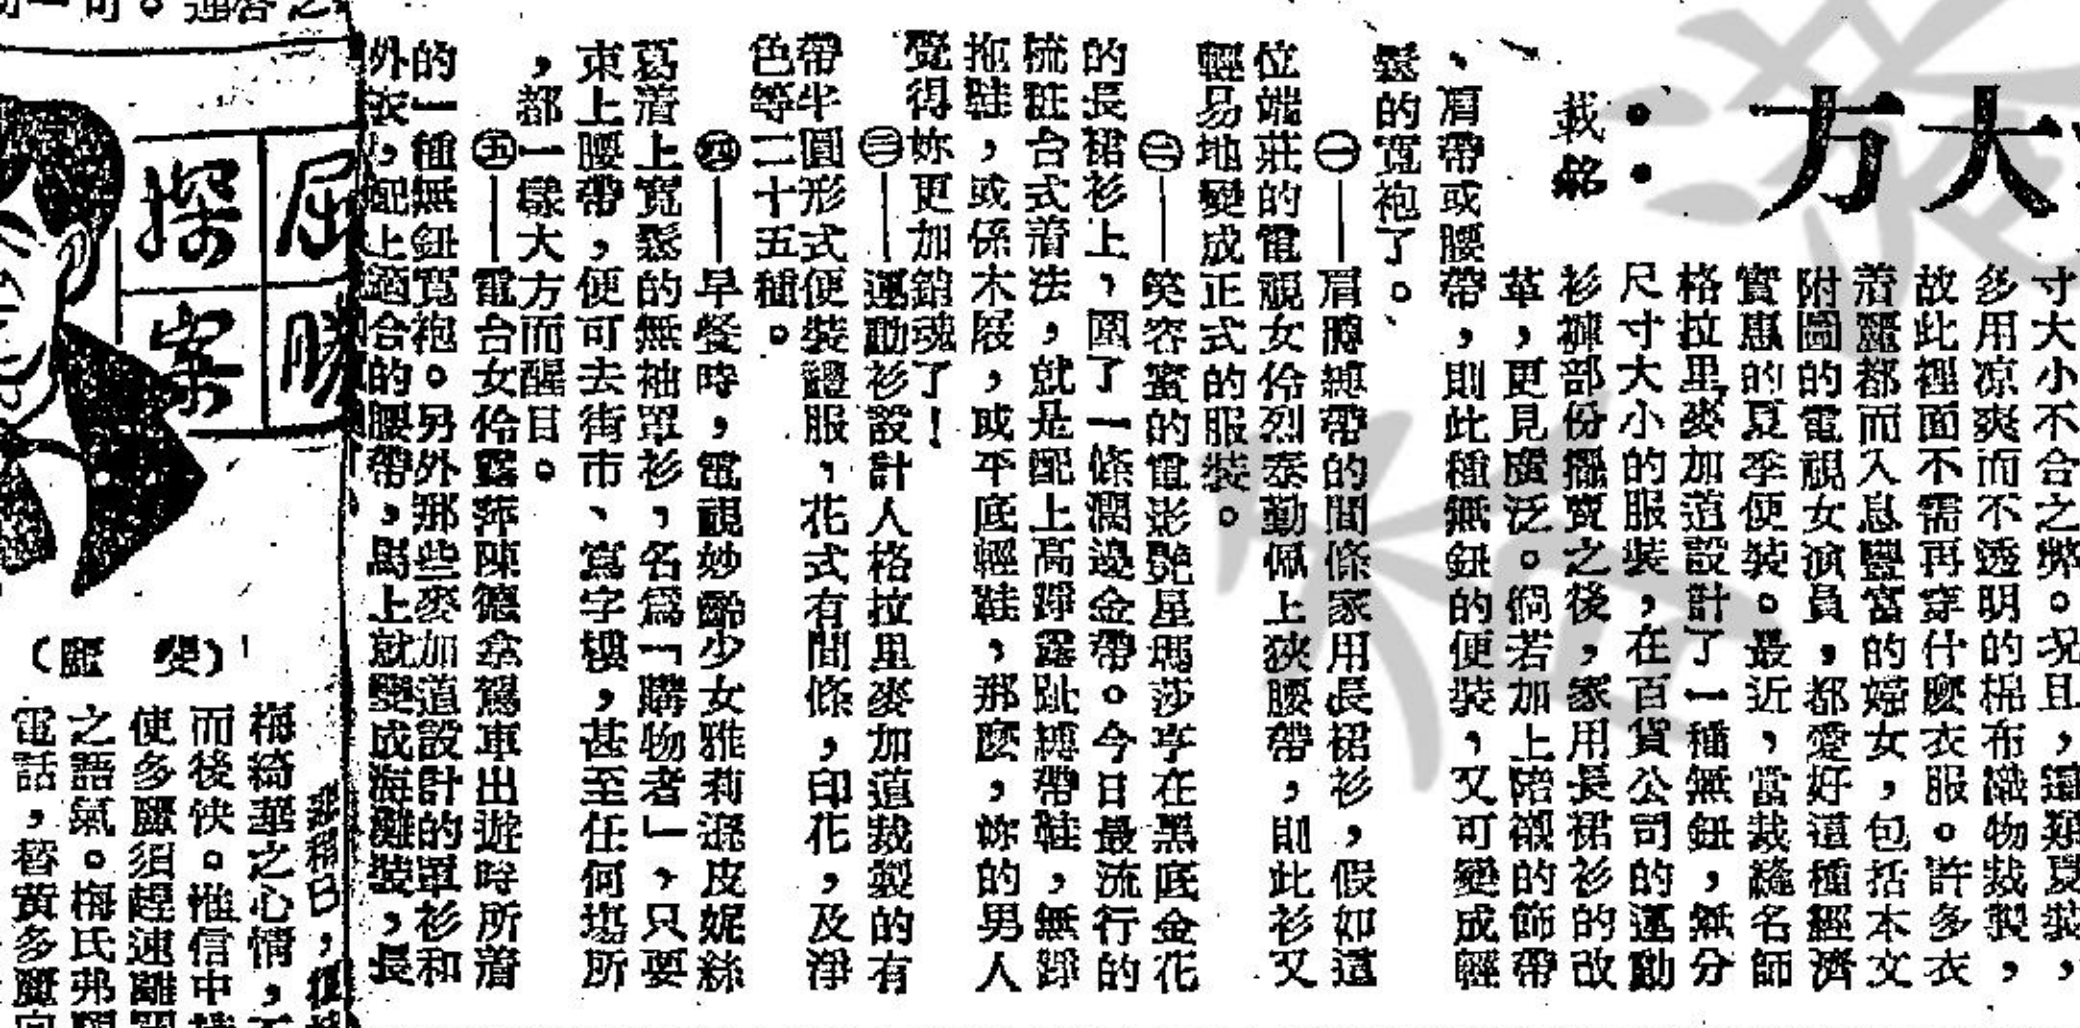 大方
：載銘
寸大小不合之弊。況且，這類夏裝，
多用凉爽而不透明的棉布織物裁製，
故此裡面不需再穿什麽衣服。許多衣
着麗都而入息豐富的婦女，包括本文
附圖的電視女演員，都愛好這種經濟
實惠的夏季便裝。最近，當裁縫名師
格拉里麥加道設計了一種無鈕，無分
尺寸大小的服裝，在百貨公司的運動
衫褲部份擺賣之後，家用長裙衫的改
革，更見廣泛。倘若加上陪襯的飾帶
、肩帶或腰帶，則此種無鈕的便裝，又可變成輕
鬆的寬袍了。
㊀——肩膊縛帶的間條家用長裙衫，假如這
位端莊的電視女伶烈泰勤佩上狹腰帶，則此衫又
輕易地變成正式的服裝。
㊁——笑容蜜的電影艷星瑪莎亨在黑底金花
的長裙衫上，圍了一條濶邊金帶。今日最流行的
梳粧台式着法，就是配上高踭露趾縛帶鞋，無踭
拖鞋，或係木屐，或平底輕鞋，那麽，妳的男人
覺得妳更加銷魂了！
㊂——運動衫設計人格拉里麥加道裁製的有
帶半圓形式便裝禮服，花式有間條，印花，及淨
色等二十五種。
㊃——早餐時，電視妙齡少女雅莉混皮妮絲
葛着上寬鬆的無袖罩衫，名爲「購物者」，只要
束上腰帶，便可去街市、寫字樓，甚至任何塲所
，都一樣大方而醒目。
㊄——電台女伶露萍陳德拿駕車出遊時所着
的一種無鈕寬袍。另外那些麥加道設計的罩衫和
外衣，配上適合的腰帶，馬上就變成海灘裝，長
屈
探案
梅綺華之心情，
而後快。惟信中
使多麗須趕速離
之語氣。梅氏弗
電話，替黃多麗向